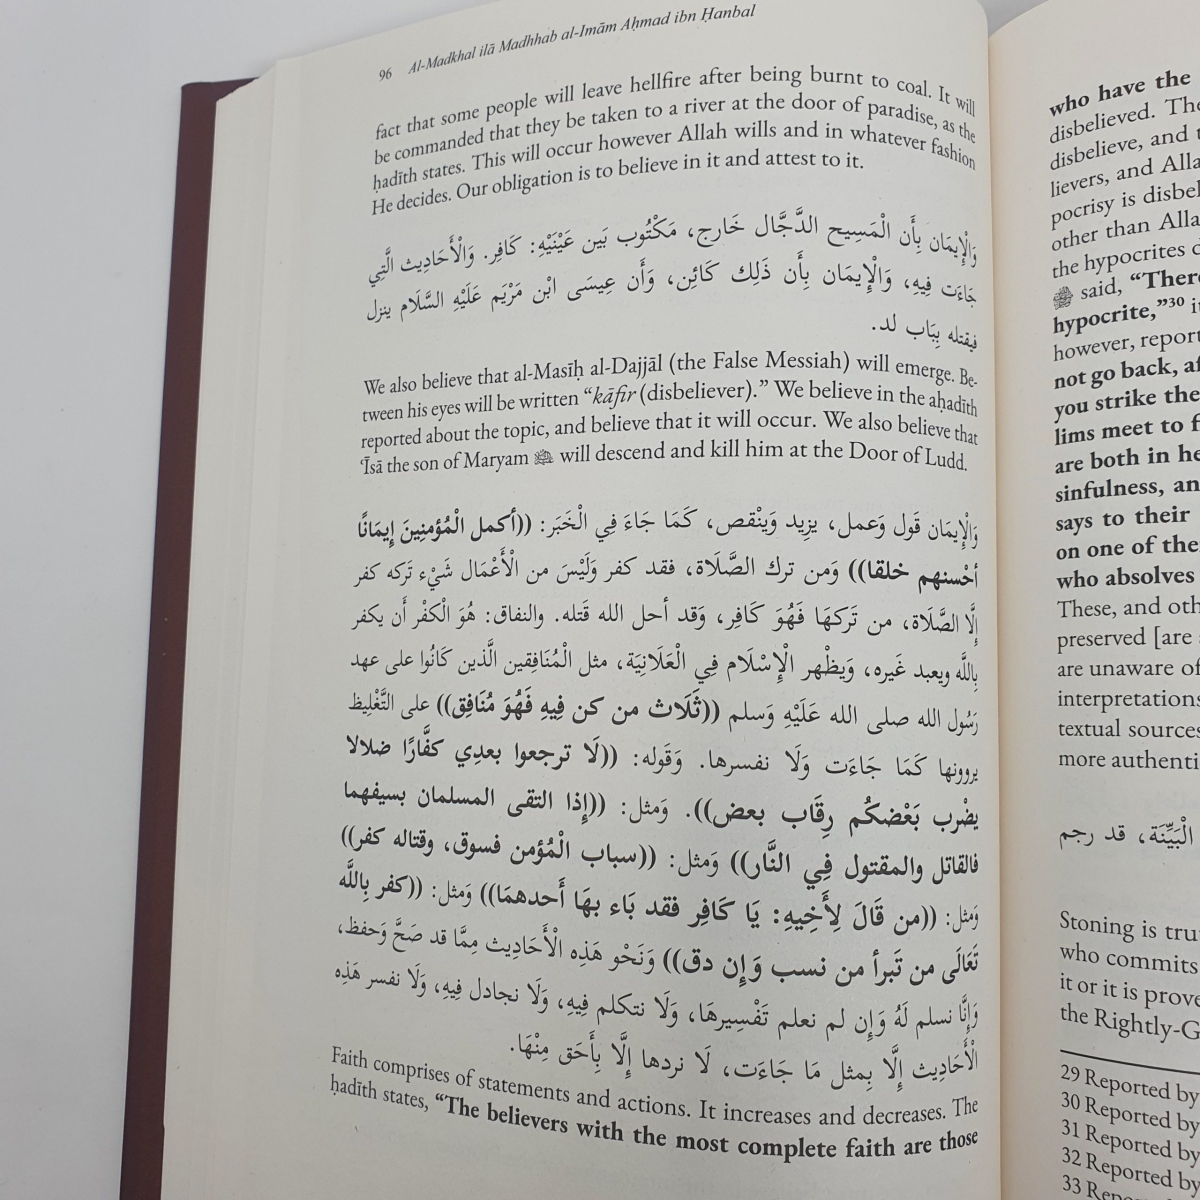 96 Al-Madkhal ilā Madhhab al-Imām Aḥmad ibn Ḥanbal
fact that some people will leave hellfire after being burnt to coal. It will
be commanded that they be taken to a river at the door of paradise, as the
ḥadīth states. This will occur however Allah wills and in whatever fashion
He decides. Our obligation is to believe in it and attest to it.
وَالْإِيمَان بِأَن الْمَسِيح الدَّجَّال خَارج، مَكْتُوب بَين عَيْنَيْهِ: كَافِر. وَالْأَحَادِيث الَّتِي
جَاءَت فِيهِ، وَالْإِيمَان بِأَن ذَلِك كَائِن، وَأَن عِيسَى ابْن مَرْيَم عَلَيْهِ السَّلَام ينزل
فيقتله بِبَاب لد.
We also believe that al-Masīḥ al-Dajjāl (the False Messiah) will emerge. Be-
tween his eyes will be written “kāfir (disbeliever).” We believe in the aḥadīth
reported about the topic, and believe that it will occur. We also believe that
ʿĪsā the son of Maryam ﷺ will descend and kill him at the Door of Ludd.
وَالْإِيمَان قَول وَعمل، يزِيد وَينْقص، كَمَا جَاءَ فِي الْخَبَر: ((أكمل الْمُؤمنِينَ إِيمَانًا
أحْسنهم خلقا)) وَمن ترك الصَّلَاة، فقد كفر وَلَيْسَ من الْأَعْمَال شَيْء تَركه كفر
إِلَّا الصَّلَاة، من تَركهَا فَهُوَ كَافِر، وَقد أحل الله قَتله. والنفاق: هُوَ الْكفْر أَن يكفر
بِاللَّه ويعبد غَيره، وَيظْهر الْإِسْلَام فِي الْعَلَانِيَة، مثل الْمُنَافِقين الَّذين كَانُوا على عهد
رَسُول الله صلى الله عَلَيْهِ وَسلم ((ثَلَاث من كن فِيهِ فَهُوَ مُنَافِق)) على التَّغْلِيظ
يروونها كَمَا جَاءَت وَلَا نفسرها. وَقَوله: ((لَا ترجعوا بعدِي كفَّارًا ضلالا
يضْرب بَعْضكُم رِقَاب بعض)). وَمثل: ((إِذا التقى المسلمان بسيفهما
فالقاتل والمقتول فِي النَّار)) وَمثل: ((سباب الْمُؤمن فسوق، وقتاله كفر))
وَمثل: ((من قَالَ لِأَخِيهِ: يَا كَافِر فقد بَاء بهَا أَحدهمَا)) وَمثل: ((كفر بِاللَّه
تَعَالَى من تَبرأ من نسب وَإِن دق)) وَنَحْو هَذِه الْأَحَادِيث مِمَّا قد صَحَّ وَحفظ،
وَإِنَّا نسلم لَهُ وَإِن لم نعلم تَفْسِيرهَا، وَلَا نتكلم فِيهِ، وَلَا نجادل فِيهِ، وَلَا نفسر هَذِه
الْأَحَادِيث إِلَّا بِمثل مَا جَاءَت، لَا نردها إِلَّا بِأَحَق مِنْهَا.
Faith comprises of statements and actions. It increases and decreases. The
ḥadīth states, “The believers with the most complete faith are those
who have the
disbelieved. The
disbelieve, and
lievers, and Alla
pocrisy is disbel
other than Alla
the hypocrites
ﷺ said, “Ther
hypocrite,”³⁰ i
however, report
not go back, af
you strike the
lims meet to f
are both in he
sinfulness, an
says to their
on one of the
who absolves
These, and oth
preserved [are
are unaware of
interpretations
textual sources
more authenti
الْبَيِّنَة، قد رجم
Stoning is tru
who commits
it or it is prove
the Rightly-G
29 Reported by
30 Reported by
31 Reported by
32 Reported by
33 Reported by